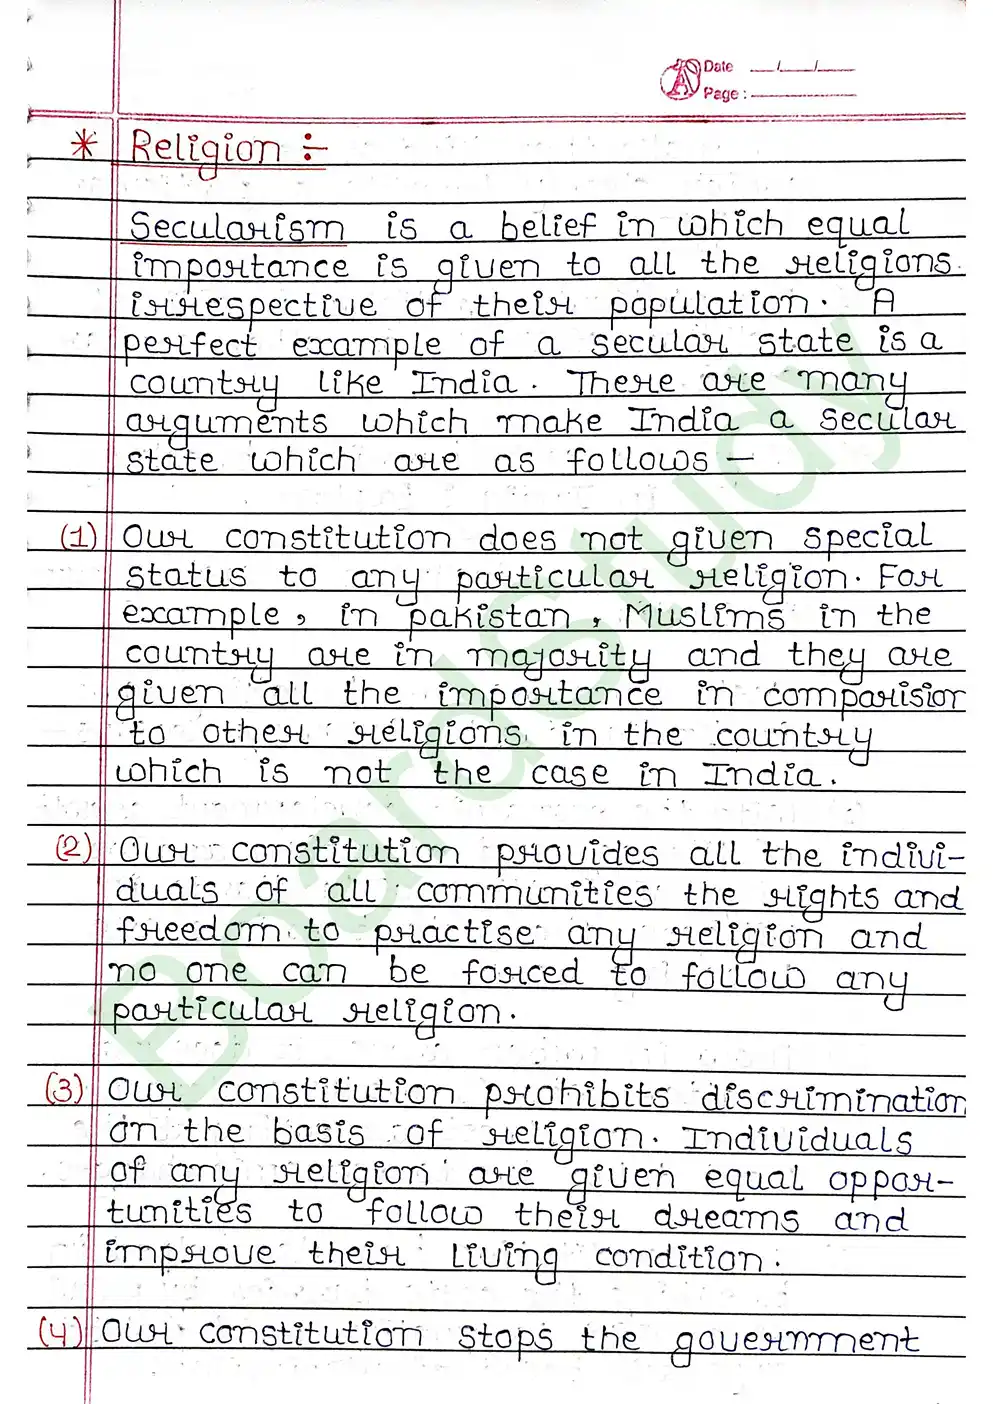 Date __/__/__
Page : ________
* Religion :-
Secularism is a belief in which equal
importance is given to all the religions
irrespective of their population. A
perfect example of a secular state is a
country like India. There are many
arguments which make India a secular
state which are as follows –
(1) Our constitution does not given special
status to any particular religion. For
example, in pakistan, Muslims in the
country are in majority and they are
given all the importance in comparision
to other religions in the country
which is not the case in India.
(2) Our constitution provides all the indivi-
duals of all communities the rights and
freedom to practise any religion and
no one can be forced to follow any
particular religion.
(3) Our constitution prohibits discrimination
on the basis of religion. Individuals
of any religion are given equal oppor-
tunities to follow their dreams and
improve their living condition.
(4) Our constitution stops the government
BoardStudy